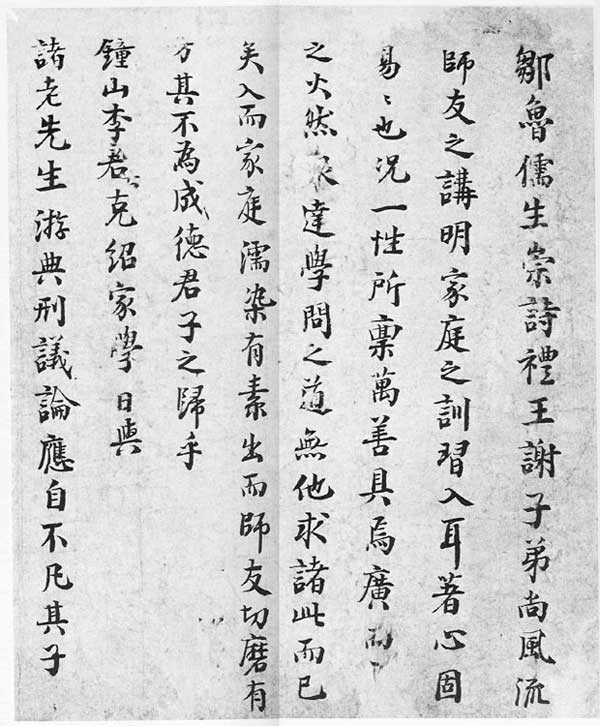 鄒魯儒生崇詩禮王謝子弟尚風流
師友之講明家庭之訓習入耳著心固
易〻也況一性所稟萬善具焉廣而
之火然達學問之道無他求諸此而已
矣入而家庭濡染有素出而師友切磨有
方其不為成德君子之歸乎
鐘山李君克紹家學日與
諸老先生游典刑議論應自不凡其子